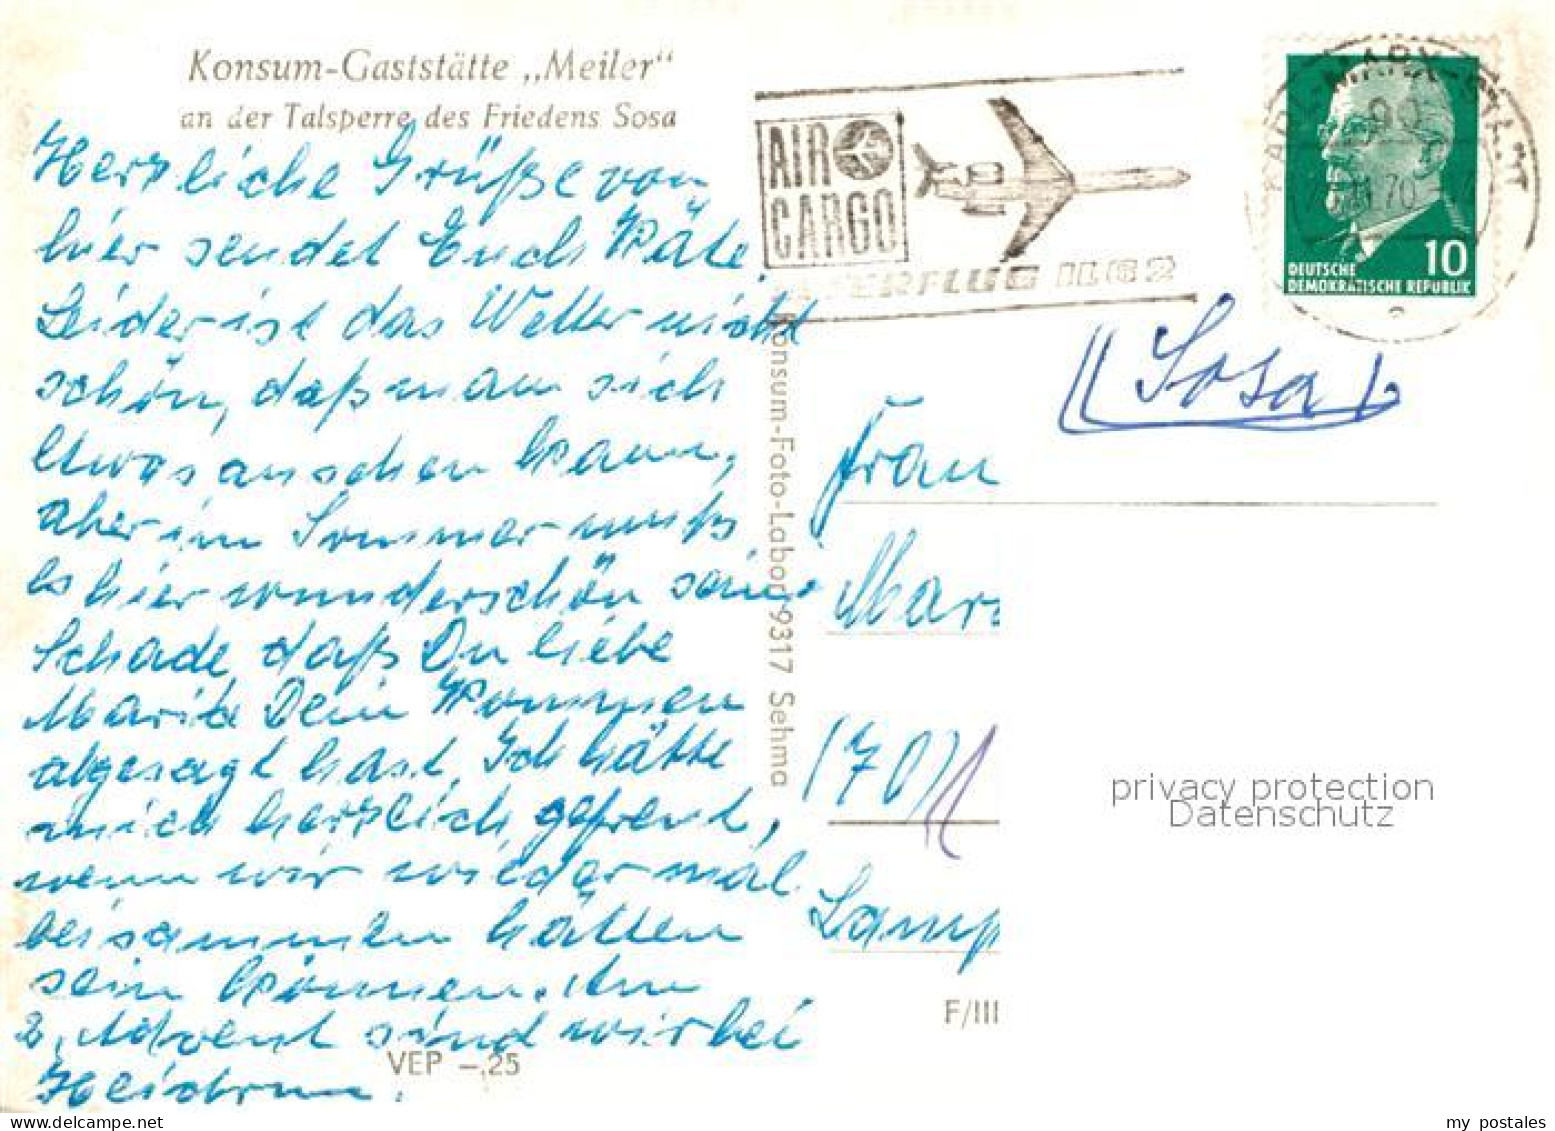 Konsum-Gaststätte „Meiler"
an der Talsperre des Friedens Sosa
Herzliche Grüße von
hier sendet Euch Käte.
Leider ist das Wetter nicht
schön, daß man sich
etwas ansehen kann,
aber im Sommer muß
es hier wunderschön sein.
Schade, daß Du liebe
Marita Dein Kommen
abgesagt hast. Ich hätte
mich herzlich gefreut,
wenn wir wieder mal
beisammen hätten
sein können. Am
2. Advent sind wir bei
Heidrun.
VEP -,25
Konsum-Foto-Labor 9317 Sehma
AIR
CARGO
INTERFLUG IL 62
KARL-MARX-STADT
90
70
10
DEUTSCHE
DEMOKRATISCHE REPUBLIK
(Sosa)
Frau
Mar
(70)
Lamp
F/III
privacy protection
Datenschutz
my postales